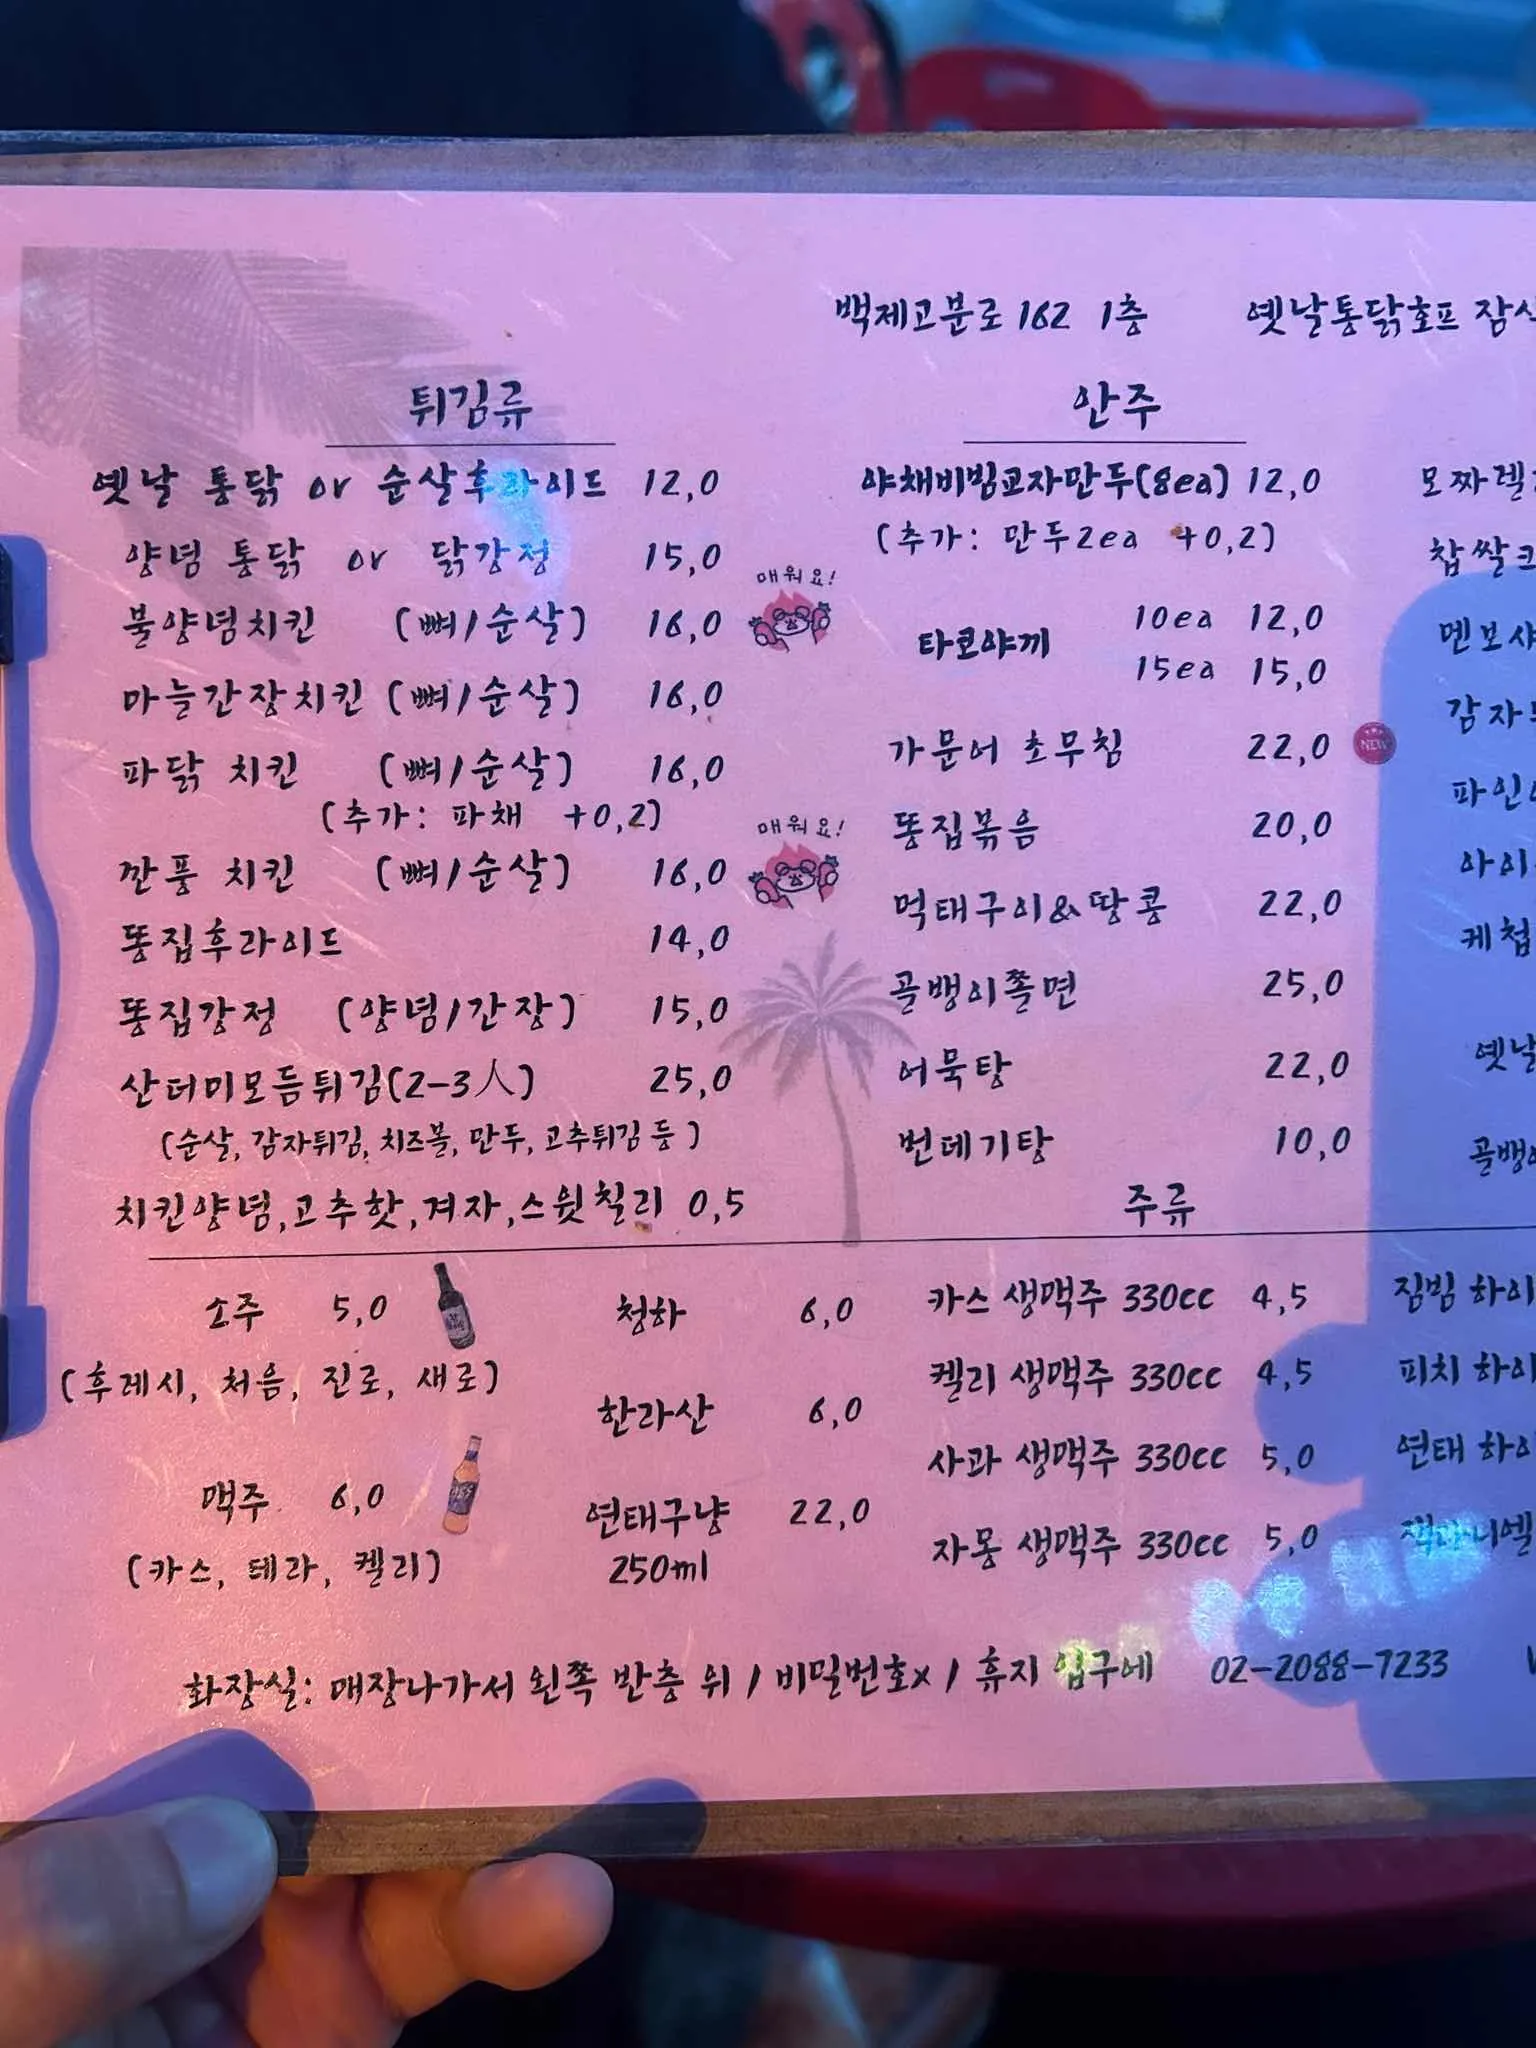 백제고분로 162 1층 옛날통닭호프
튀김류
옛날 통닭 or 순살후라이드 12,0
양념 통닭 or 닭강정 15,0
매워요!
불양념치킨 (뼈/순살) 16,0
마늘간장치킨 (뼈/순살) 16,0
파닭 치킨 (뼈/순살) 16,0
(추가: 파채 +0,2)
매워요!
깐풍 치킨 (뼈/순살) 16,0
똥집후라이드 14,0
똥집강정 (양념/간장) 15,0
산더미모듬튀김(2-3人) 25,0
(순살, 감자튀김, 치즈볼, 만두, 고추튀김 등)
치킨양념,고추핫,겨자,스윗칠리 0,5
안주
야채비빔교자만두(8ea) 12,0
(추가: 만두2ea +0,2)
타코야끼 10ea 12,0
15ea 15,0
가문어 초무침 22,0 NEW
똥집볶음 20,0
먹태구이&땅콩 22,0
골뱅이쫄면 25,0
어묵탕 22,0
번데기탕 10,0
모짜렐
찹쌀
멘보샤
감자
파인
아이
케첩
옛날
골뱅이
주류
소주 5,0
(후레시, 처음, 진로, 새로)
맥주 6,0
(카스, 테라, 켈리)
청하 6,0
한라산 6,0
연태구냥 22,0
250ml
카스 생맥주 330cc 4,5
켈리 생맥주 330cc 4,5
사과 생맥주 330cc 5,0
자몽 생맥주 330cc 5,0
짐빔 하이
피치 하이
연태 하이
잭다니엘
화장실: 매장나가서 왼쪽 반층 위 / 비밀번호x / 휴지 입구에 02-2088-7233